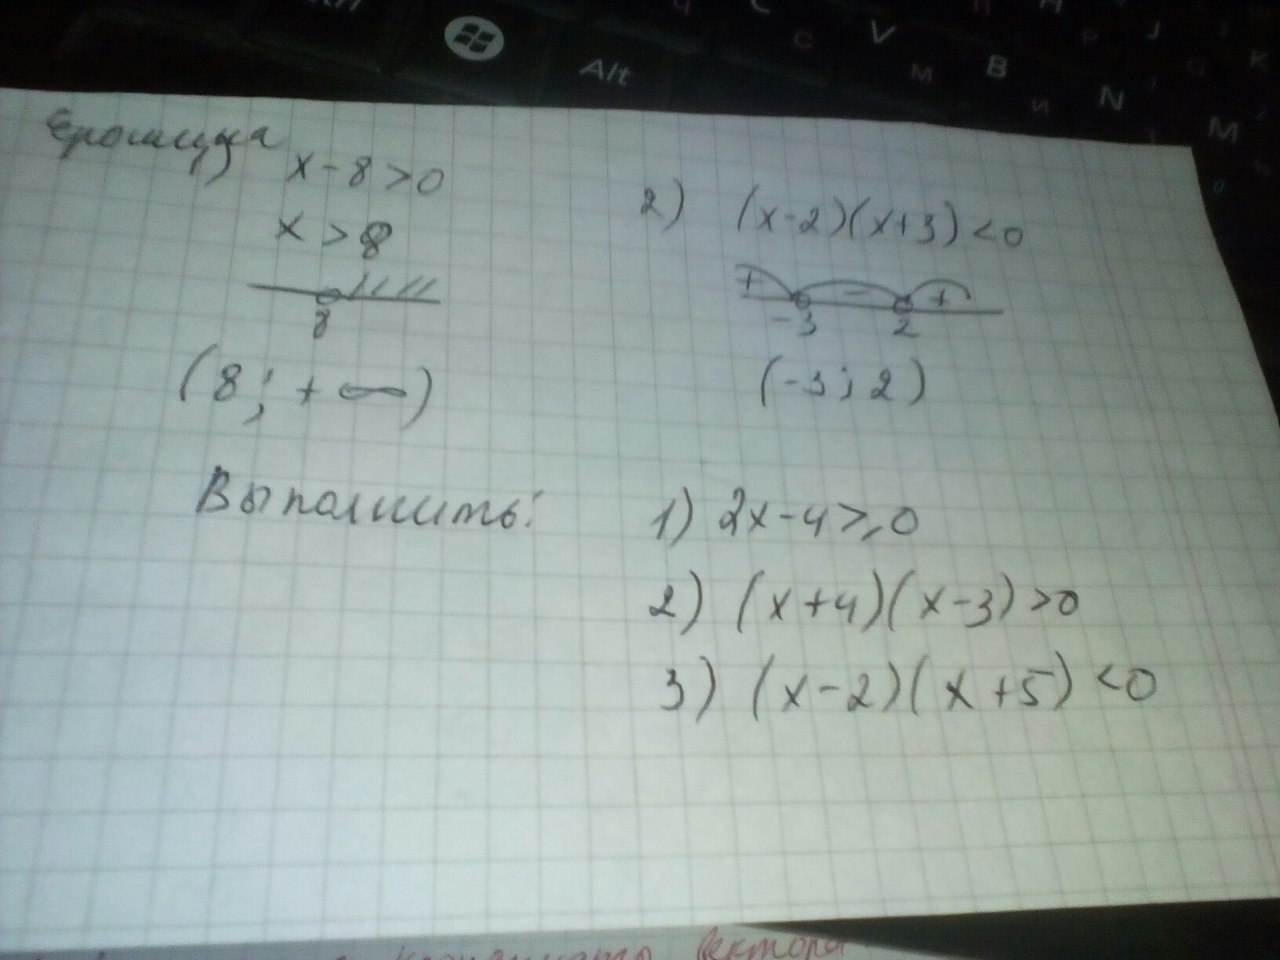 Alt
C
V
B
N
M
с
м
и
x-8>0
x>8
8
(8; +∞)
2) (x-2)(x+3)<0
+ - +
-3 2
(-3; 2)
Выполнить:
1) 2x-4⩾0
2) (x+4)(x-3)>0
3) (x-2)(x+5)<0
вектора